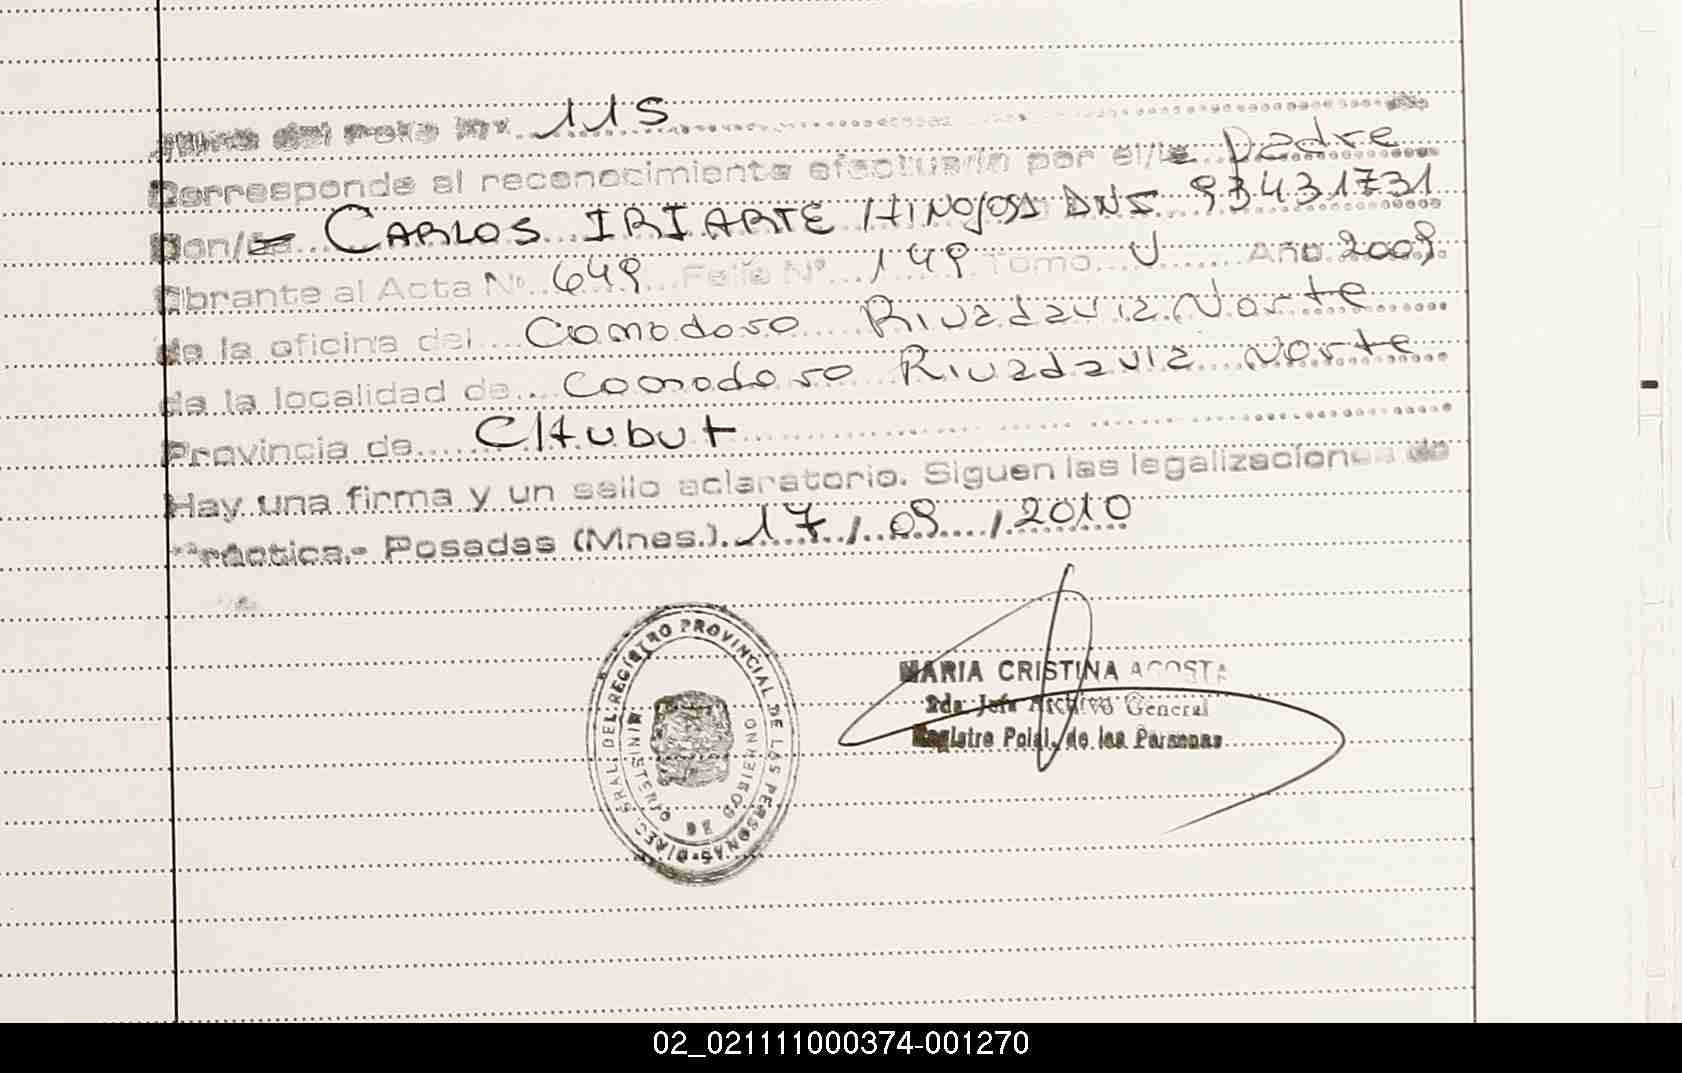 del Folio Nº 115
Corresponde al reconocimiento efectuado por el/la padre
Don/ña CARLOS IRIARTE HINOJOSA DNI 93431731
Obrante al Acta Nº 649 Folio Nº 149 Tomo U Año 2009.
de la oficina del Comodoro Rivadavia Norte
de la localidad de Comodoro Rivadavia Norte
Provincia de CHubut
Hay una firma y un sello aclaratorio. Siguen las legalizaciones de
práctica.- Posadas (Mnes.). 17/09/2010
DIREC. GRAL. DEL REGISTRO PROVINCIAL DE LAS PERSONAS
MINISTERIO DE GOBIERNO
MARIA CRISTINA ACOSTA
2da. Jefa Archivo General
Registro Pcial. de las Personas
02_021111000374-001270